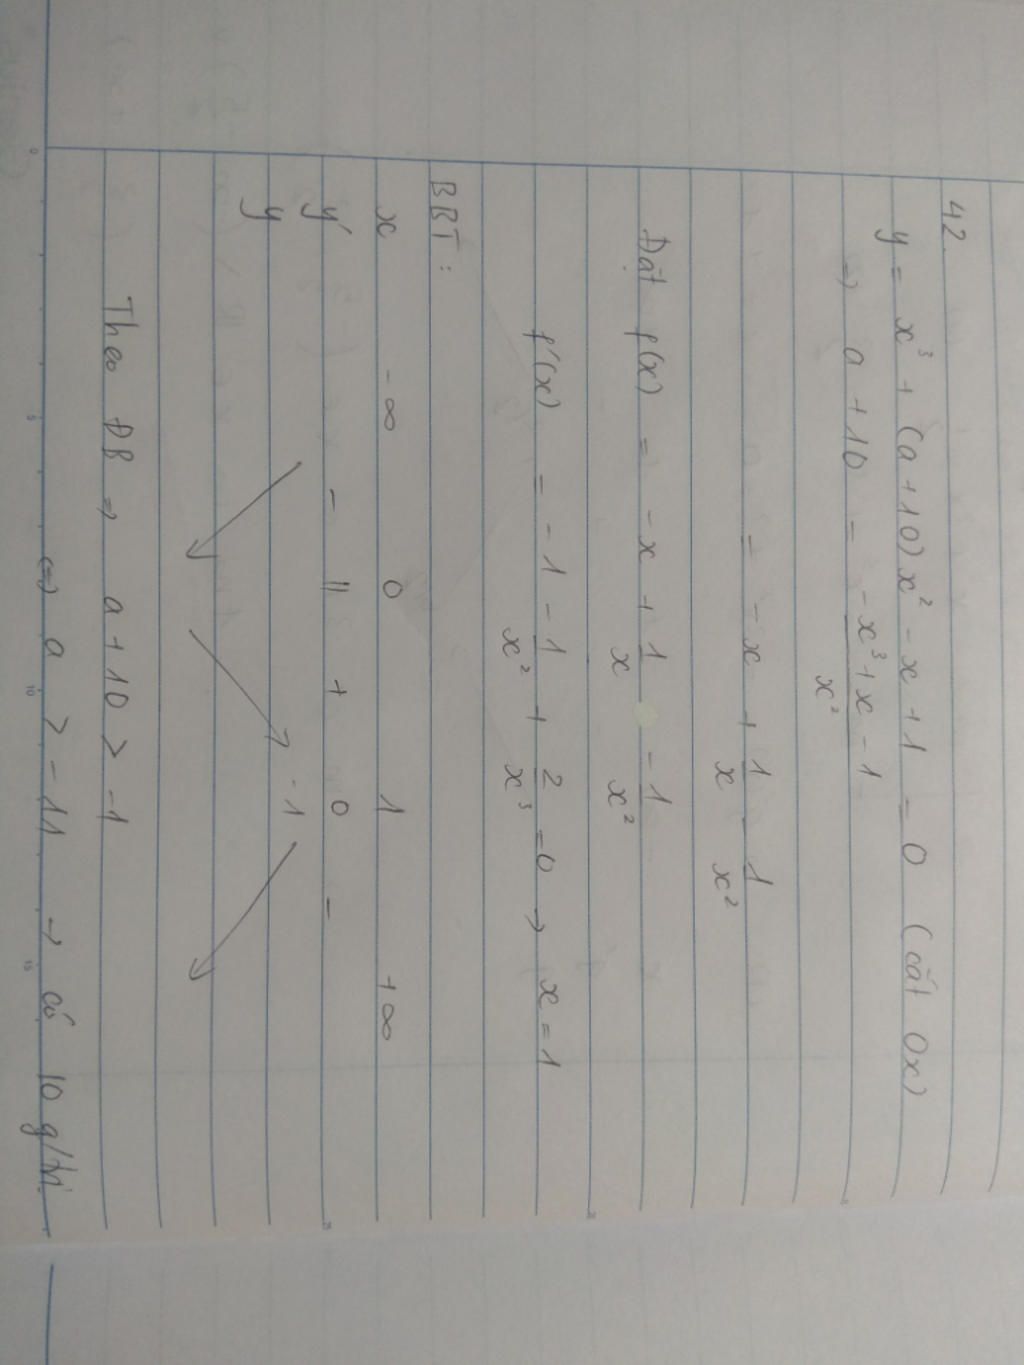 42.
y = x³ + (a+10)x² - x + 1 = 0 (cắt Ox)
=> a + 10 = (-x³ + x - 1)/x²
= -x + 1/x - 1/x²
Đặt f(x) = -x + 1/x - 1/x²
f'(x) = -1 - 1/x² + 2/x³ = 0 → x = 1
BBT:
x -∞ 0 1 +∞
y' - || + 0 -
y ↘ ↗ -1 ↘
Theo ĐB => a + 10 > -1
<=> a > -11 → có 10 g/trị.